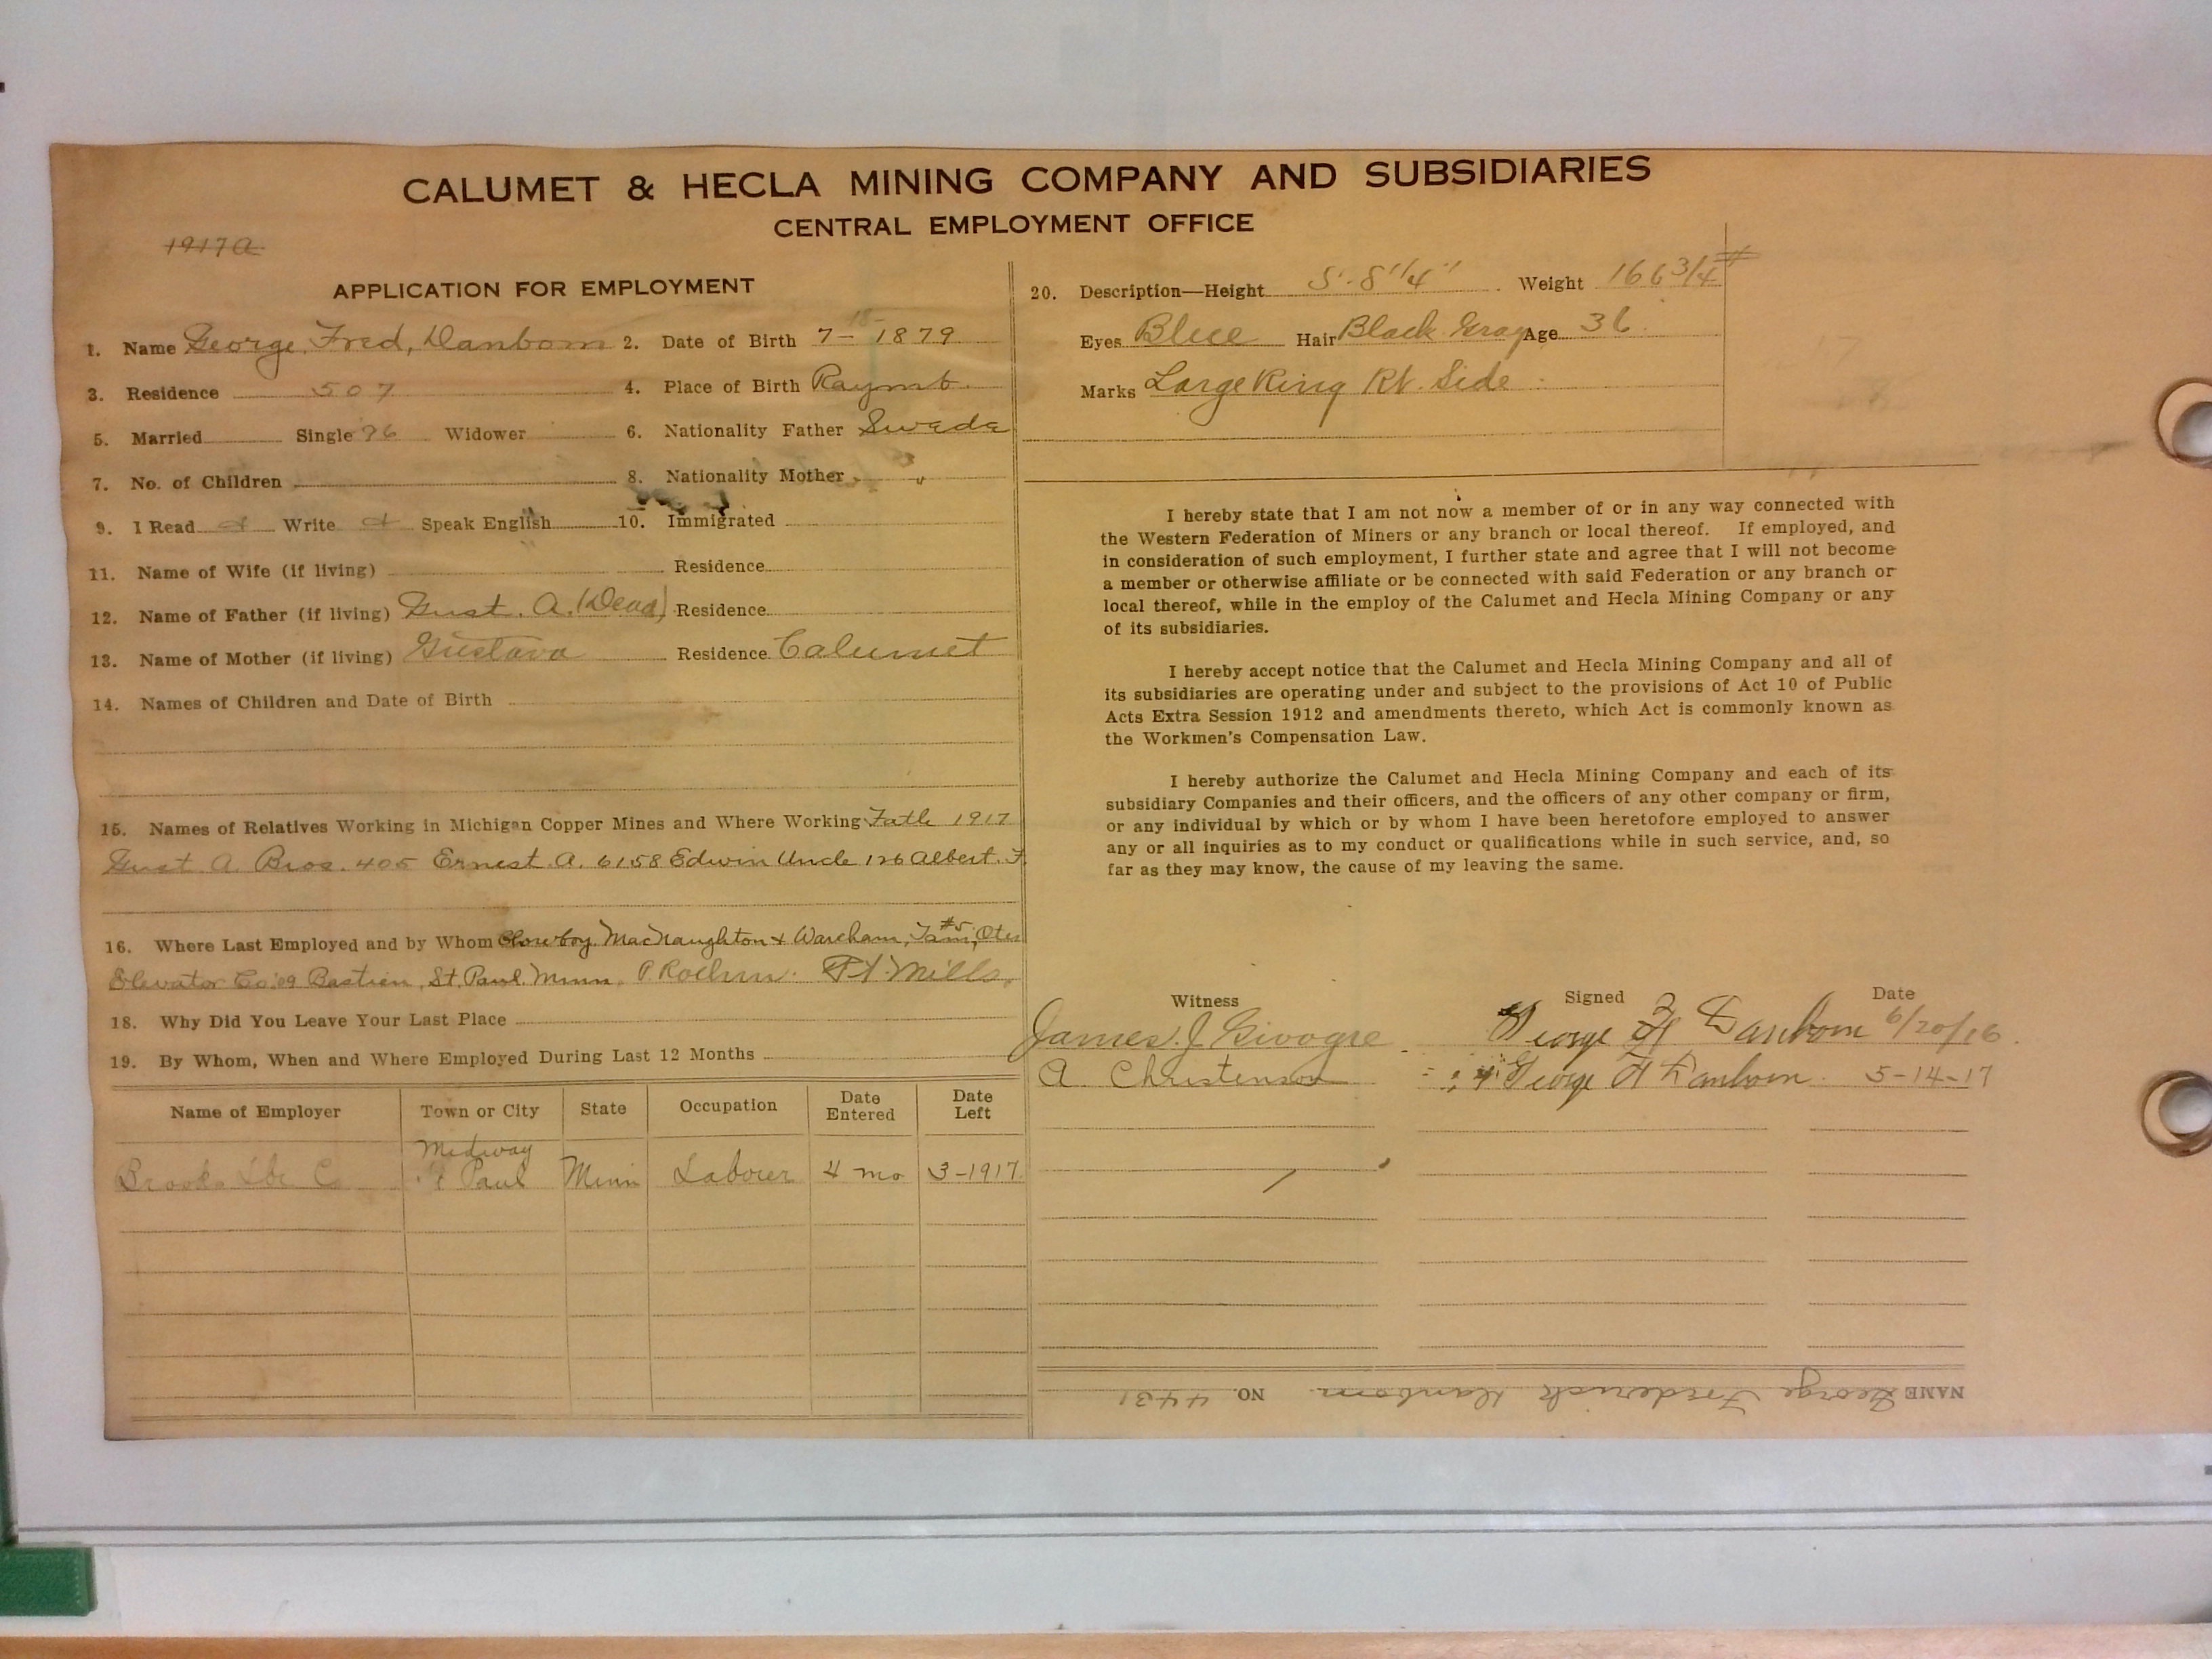 CALUMET & HECLA MINING COMPANY AND SUBSIDIARIES
CENTRAL EMPLOYMENT OFFICE
1917A
APPLICATION FOR EMPLOYMENT
1. Name George Fred, Danbom 2. Date of Birth 7- 1879
3. Residence 507 4. Place of Birth Raymb.
5. Married Single Widower 6. Nationality Father Swede
7. No. of Children 8. Nationality Mother "
9. I Read Write Speak English 10. Immigrated
11. Name of Wife (if living) Residence
12. Name of Father (if living) Gust. A. (Dead) Residence
13. Name of Mother (if living) Gustava Residence Calumet
14. Names of Children and Date of Birth
15. Names of Relatives Working in Michigan Copper Mines and Where Working Fath 1917
Gust. A. Bros. 405 Ernest. A. 6158 Edwin Uncle 126 Albert. F
16. Where Last Employed and by Whom MacNaughton & Wareham, Tam #5, Otis
Elevator Co. '09 Bastien, St. Paul. Minn. P. Mills
18. Why Did You Leave Your Last Place
19. By Whom, When and Where Employed During Last 12 Months
Name of Employer Town or City State Occupation Date Entered Date Left
Midway
Brooks Lbr Co St Paul Minn Laborer 4 mo 3-1917
20. Description—Height 5'-8 1/4" Weight 166 3/4 #
Eyes Blue Hair Black Gray Age 36
Marks Large Ring Rt. Side
I hereby state that I am not now a member of or in any way connected with
the Western Federation of Miners or any branch or local thereof. If employed, and
in consideration of such employment, I further state and agree that I will not become
a member or otherwise affiliate or be connected with said Federation or any branch or
local thereof, while in the employ of the Calumet and Hecla Mining Company or any
of its subsidiaries.
I hereby accept notice that the Calumet and Hecla Mining Company and all of
its subsidiaries are operating under and subject to the provisions of Act 10 of Public
Acts Extra Session 1912 and amendments thereto, which Act is commonly known as
the Workmen's Compensation Law.
I hereby authorize the Calumet and Hecla Mining Company and each of its
subsidiary Companies and their officers, and the officers of any other company or firm,
or any individual by which or by whom I have been heretofore employed to answer
any or all inquiries as to my conduct or qualifications while in such service, and, so
far as they may know, the cause of my leaving the same.
Witness Signed Date
James. J. George F Danbom 6/20/16
A. Christenson George F Danbom 5-14-17
NAME George Frederick Danbom NO. 4431